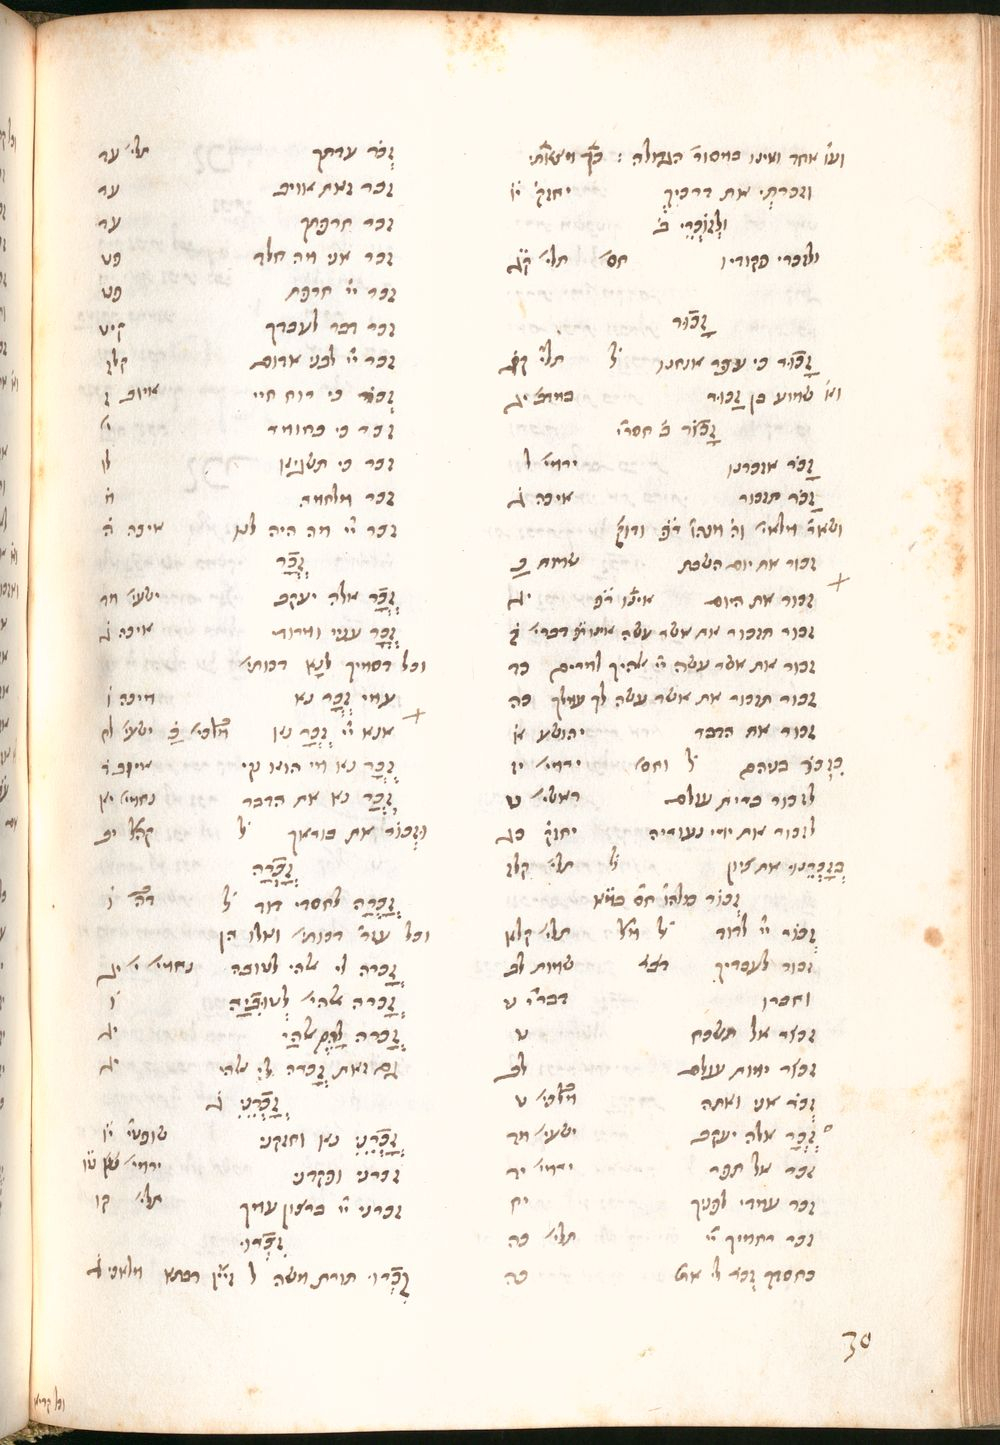 ועו׳ אחד ואינו במסור׳ הגדולה : כך מצאתי
וזכרתי את דרכיך יחזק׳ יו
ולזוכרי ב׳
ולזכרי פקודיו חס׳ תלי׳ קג
זכור
זכור כי עפר אנחנו ל׳ תלי׳ קג
וא׳ שמוע בן זכור במדב׳ יג
זכור ב׳ חסרי׳
זכר אזכרנו ירמי׳ ל
זכר תזכור איכה ג
ושאר׳ מלאי׳
זכור את יום השבת שמות כ
זכור את היום יג
זכור תזכור את אשר עשה דברי׳ ז
זכור את אשר עשה יי׳ אלהיך למרים כד
זכור תזכור את אשר עשה לך עמלק כה
זכור את הדבר יהושע א׳
ל׳ וחס׳ ירמי׳ יז
לזכור ברית עולם ראשי׳ ט
לזכור את ימי נעוריה יחזק׳ כג
בזכרנו את ציון ל׳ תלי׳ קלז
זכור
זכור יי׳ לדוד תלי׳ קלא
זכור לעבדיך שמות לב
וחברו דברי׳ ט
זכור אל תשכח ט
זכור ימות עולם לב
זכר אני ואתה מלכי׳ ט
זכר אלה יעקב ישעי׳ מד
זכר אל תפר ירמי׳ יד
זכר עמדי לפניך יח
זכר רחמיך יי׳ תלי׳ כה
כחסדך זכר לי אתה כה
זכר עדתך תלי׳ עד
זכר זאת אויב עד
זכר חרפתך עד
זכר אני מה חלד פט
זכר יי׳ חרפת פט
זכר דבר לעבדך קיט
זכר יי׳ לבני אדום קלז
זכור כי רוח חיי איוב ז
זכר כי כחומר י׳
זכר כי תשגיא לו
זכר מלחמה מ
זכר יי׳ מה היה לנו איכה ה
זכר
זכר אלה יעקב ישעי׳ מד
זכר עניי ומרודי איכה ג
וכל דסמיך לנא דכותי׳
עמי זכר נא מיכה ו
אנא יי׳ זכר נא מלכי׳ כ ישעי׳ לח
זכר נא מי הוא נקי איוב ד
זכר נא את הדבר נחמי׳ א
וזכור את בוראך ל׳ קהל׳ יב
זכרה
זכרה לחסדי דוד ל׳ דה׳ ו
וכל עזר׳ דכותי׳ ואלו הן
זכרה לי אלהי לטובה נחמי׳ יג
זכרה אלהי לטוביה ו
זכרה להם אלהי יג
גם זאת זכרה לי אלהי יג
זכרני ג
זכרני נא וחזקני שופטי׳ יו
זכרני ופקדני ירמי׳ טו
זכרני יי׳ ברצון עמך תלי׳ קו
זכרו
זכרו תורת משה ל׳ רבתא מלאכי ג
30